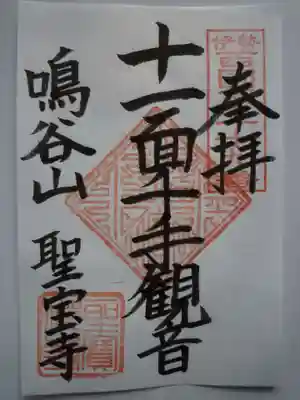 奉拝
十一面千手観音
鳴谷山 聖宝寺
伊勢